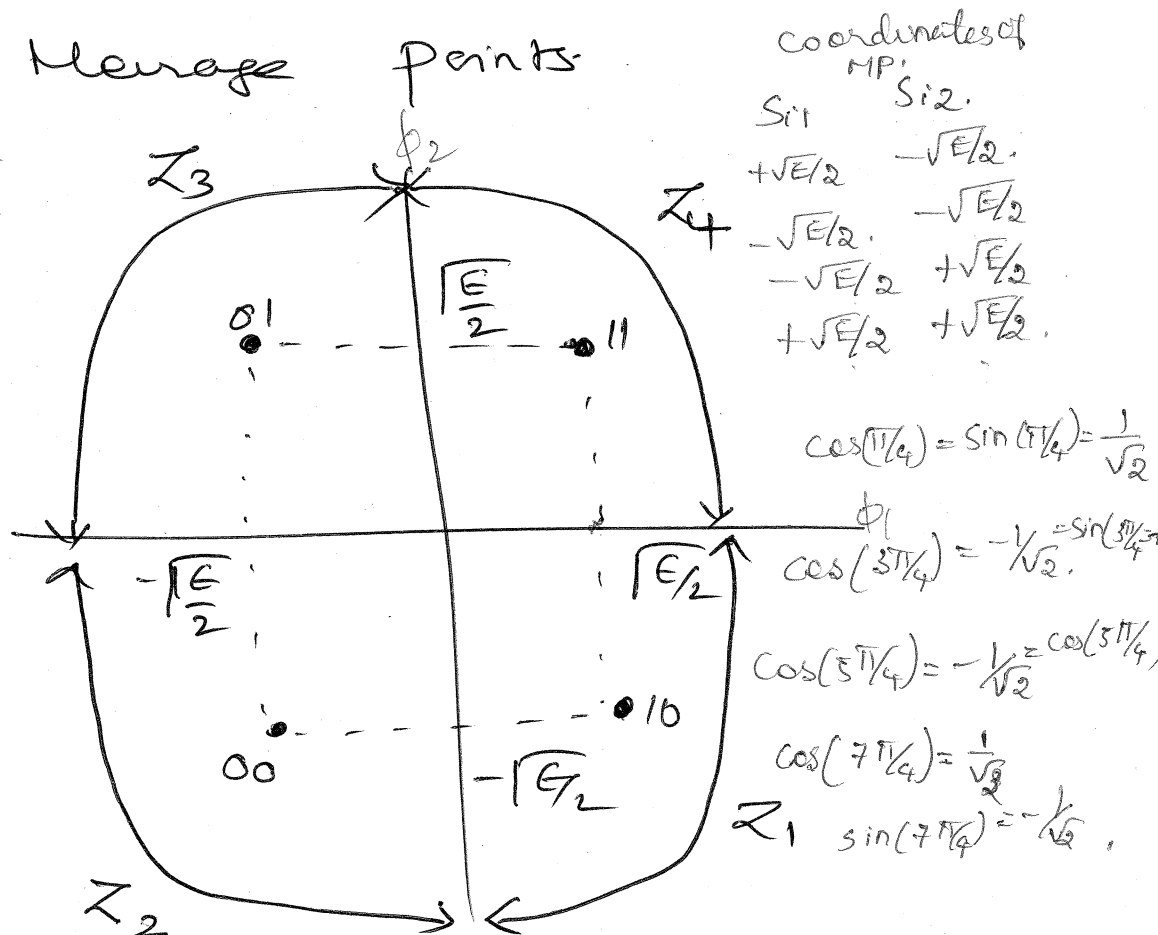 Message points.
coordinates of
MP.
Si1 Si2.
+√E/2 -√E/2.
-√E/2. -√E/2
-√E/2 +√E/2
+√E/2 +√E/2.
ϕ2
Z3
Z4
√E/2
01
11
cos(π/4) = sin(π/4) = 1/√2
ϕ1
cos(3π/4) = -1/√2.
-√E/2
√E/2
cos(5π/4) = -1/√2 = cos(5π/4,
00
10
-√E/2
cos(7π/4) = 1/√2
Z1
sin(7π/4) = -1/√2.
Z2